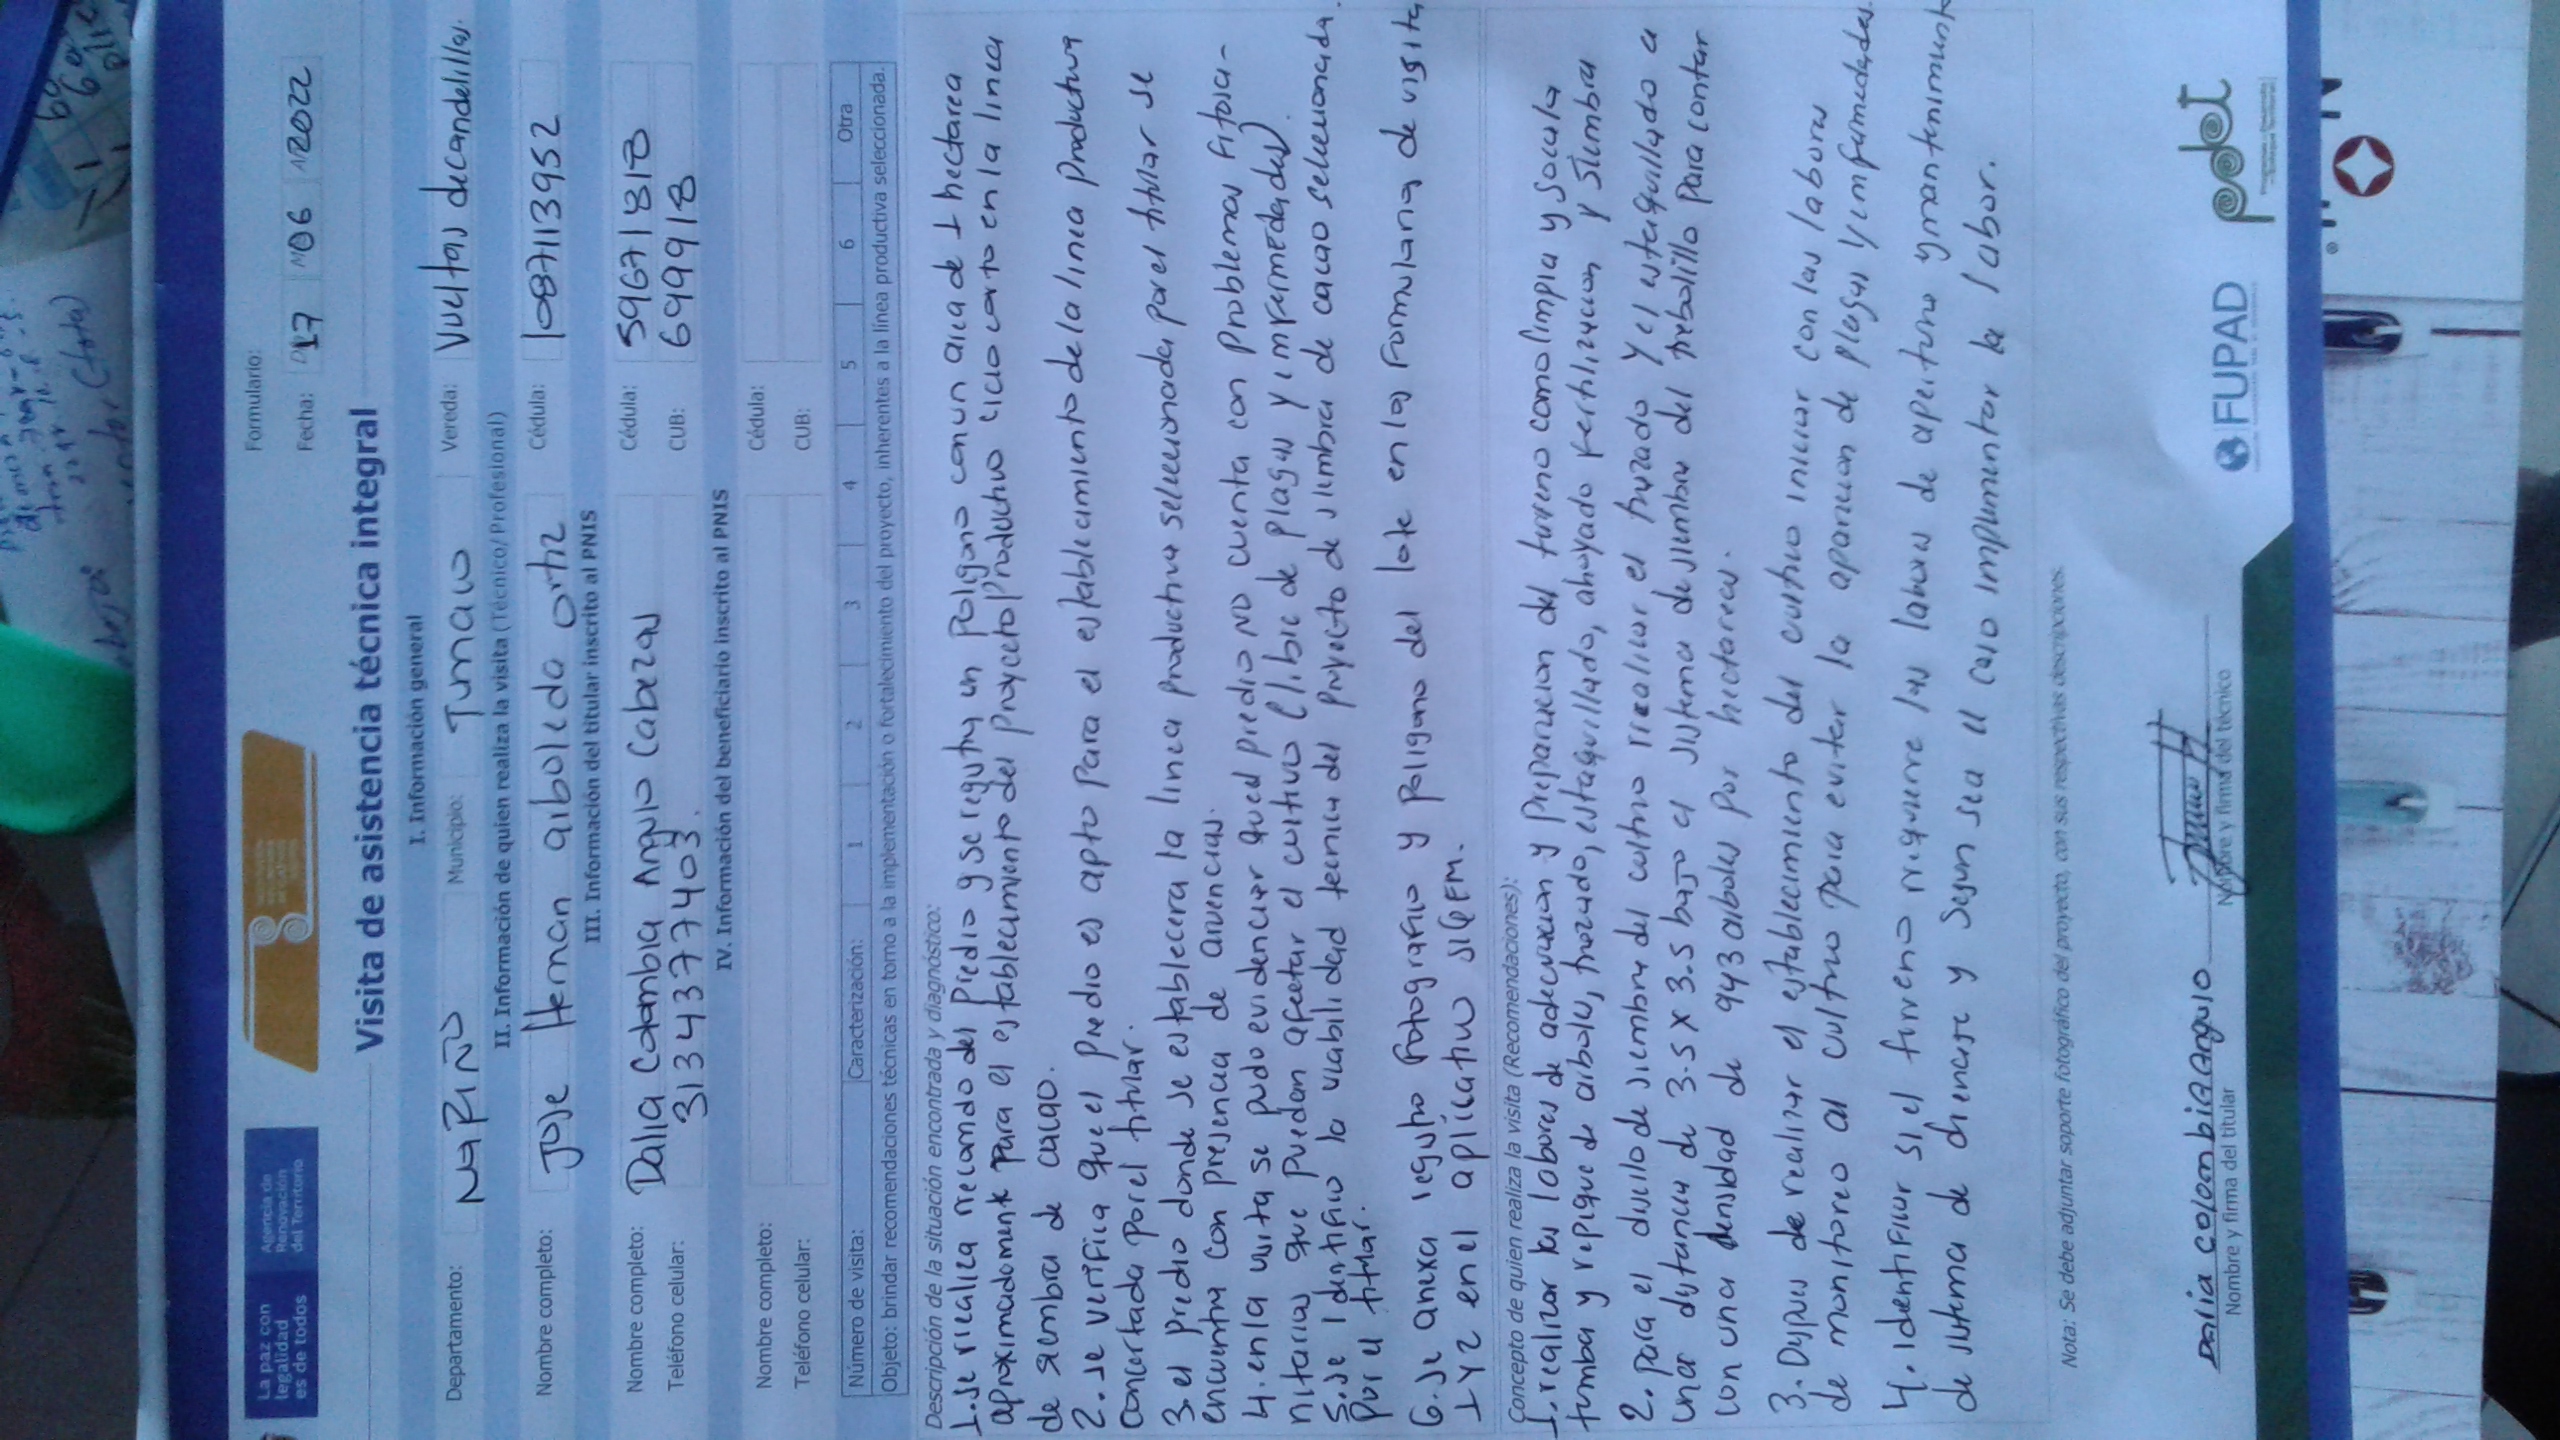 La paz con
legalidad
es de todos
Agencia de
Renovación
del Territorio
Formulario:
Fecha: D17 M06 A2022
Visita de asistencia técnica integral
I. Información general
Departamento: NaRIÑO Municipio: Tumaco Vereda: Vueltas de candelillas.
II. Información de quien realiza la visita (Técnico/ Profesional)
Nombre completo: Jose Hernan arboleda ortiz Cédula: 1087113952
III. Información del titular inscrito al PNIS
Nombre completo: Dalia Colombia Angulo Cabezas Cédula: 59671818
Teléfono celular: 3134377403. CUB: 699918
IV. Información del beneficiario inscrito al PNIS
Nombre completo: Cédula:
Teléfono celular: CUB:
Número de visita: Caracterización: 1 2 3 4 5 6 Otra
Objeto: brindar recomendaciones técnicas en torno a la implementación o fortalecimiento del proyecto, inherentes a la línea productiva seleccionada.
Descripción de la situación encontrada y diagnóstico:
1. se realiza recorrido del predio y se registra un poligono con un area de 1 hectarea
aproximadamente para el establecimiento del proyecto productivo ciclo corto en la linea
de siembra de cacao.
2. se verifica que el predio es apto para el establecimiento de la linea productiva
concertada por el titular.
3. el predio donde se establecera la linea productiva seleccionada por el titular se
encuentra con presencia de arvencias.
4. en la visita se pudo evidenciar que el predio no cuenta con problemas fitosa-
nitarios que puedan afectar el cultivo (libre de plagas y enfermedades).
5. se identifico la viabilidad tecnica del proyecto de siembra de cacao seleccionada
por el titular.
6. se anexa registro fotografio y poligono del lote en los formulario de visita
1 y 2 en el aplicativo SIGEM.
Concepto de quien realiza la visita (Recomendaciones):
1. realizar las labores de adecuacion y preparacion del terreno como limpia y socola
tumba y repique de arboles, trazado, estaquillado, ahoyado fertilizacion y siembra
2. para el dusello de siembra del cultivo realizar el trazado y el estaquillado a
una distancia de 3.5 x 3.5 bajo el sistema de siembra del trebolillo para contar
con una densidad de 943 arboles por hectareas.
3. Dypues de realizar el establecimiento del cultivo iniciar con las labores
de monitoreo al cultivo para evitar la aparicion de plagas y enfermedades.
4. identificar si el terreno requiere las labores de apertura y mantenimiento
de sistema de drenaje y segun sea el caso implementar la labor.
Nota: Se debe adjuntar soporte fotográfico del proyecto, con sus respectivas descripciones.
Dalia colombia Angulo
Nombre y firma del titular
Nombre y firma del técnico
FUPAD
pdet